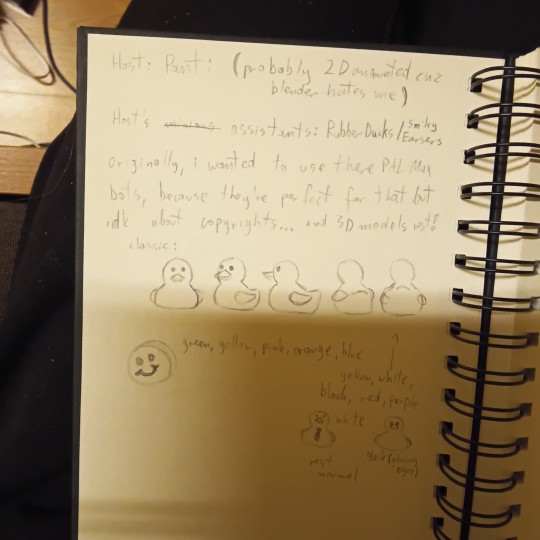 Host: Paint: (probably 2D animated cuz
blender hates me)
Host's assistants: RubberDucks/smiley
Earsers
Originally, i wanted to use these PAL Max
bots, because they're perfect for that but
idk about copyrights... and 3D models
classic:
green, yellow, pink, orange, blue
yellow, white,
black, red, purple
white
rest
normal